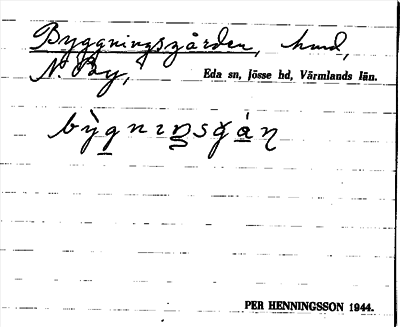 Byggningsgården, hmd,
N. By, Eda sn, Jösse hd, Värmlands län.
bỳgnıŋsgán
PER HENNINGSSON 1944.